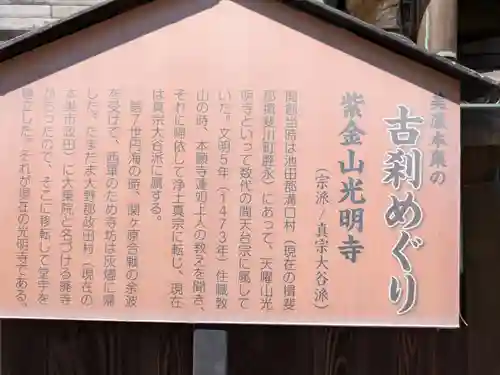 美濃本巣の
古刹めぐり
紫金山光明寺
(宗派/真宗大谷派)
開創当時は池田郡溝口村(現在の揖斐
郡揖斐川町
)にあって、天曜山光
明寺といって数代の間天台宗に属して
いた。文明5年(1473年)住職教
山の時、本願寺蓮如上人の教えを聞き、
それに帰依して浄土真宗に転じ、現在
は真宗大谷派に属する。
第7世円海の時、関ヶ原合戦の余波
を受けて、西軍のため寺坊は灰燼に帰
した。たまたま大野郡政田村(現在の
本巣市政田)に大乗院と名づける廃寺
があったので、そこに移転して堂宇を
建立した。それが現在の光明寺である。